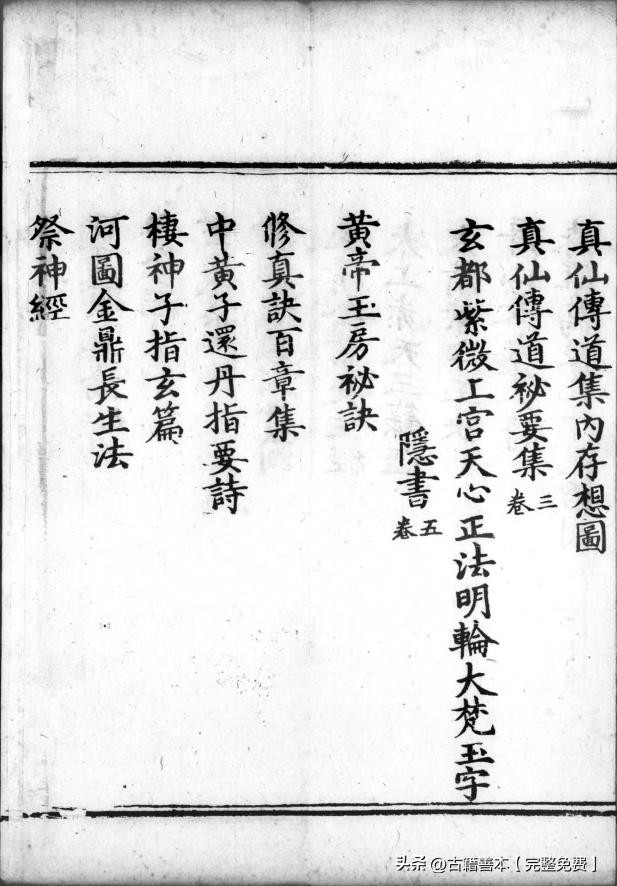 真仙傳道集內存想圖
真仙傳道祕要集 三卷
玄都紫微上宮天心正法明輪大梵玉字
隱書 五卷
黃帝玉房祕訣
修真訣百章集
中黃子還丹指要詩
棲神子指玄篇
河圖金鼎長生法
祭神經
头杀 @古籍善本【完整免费】